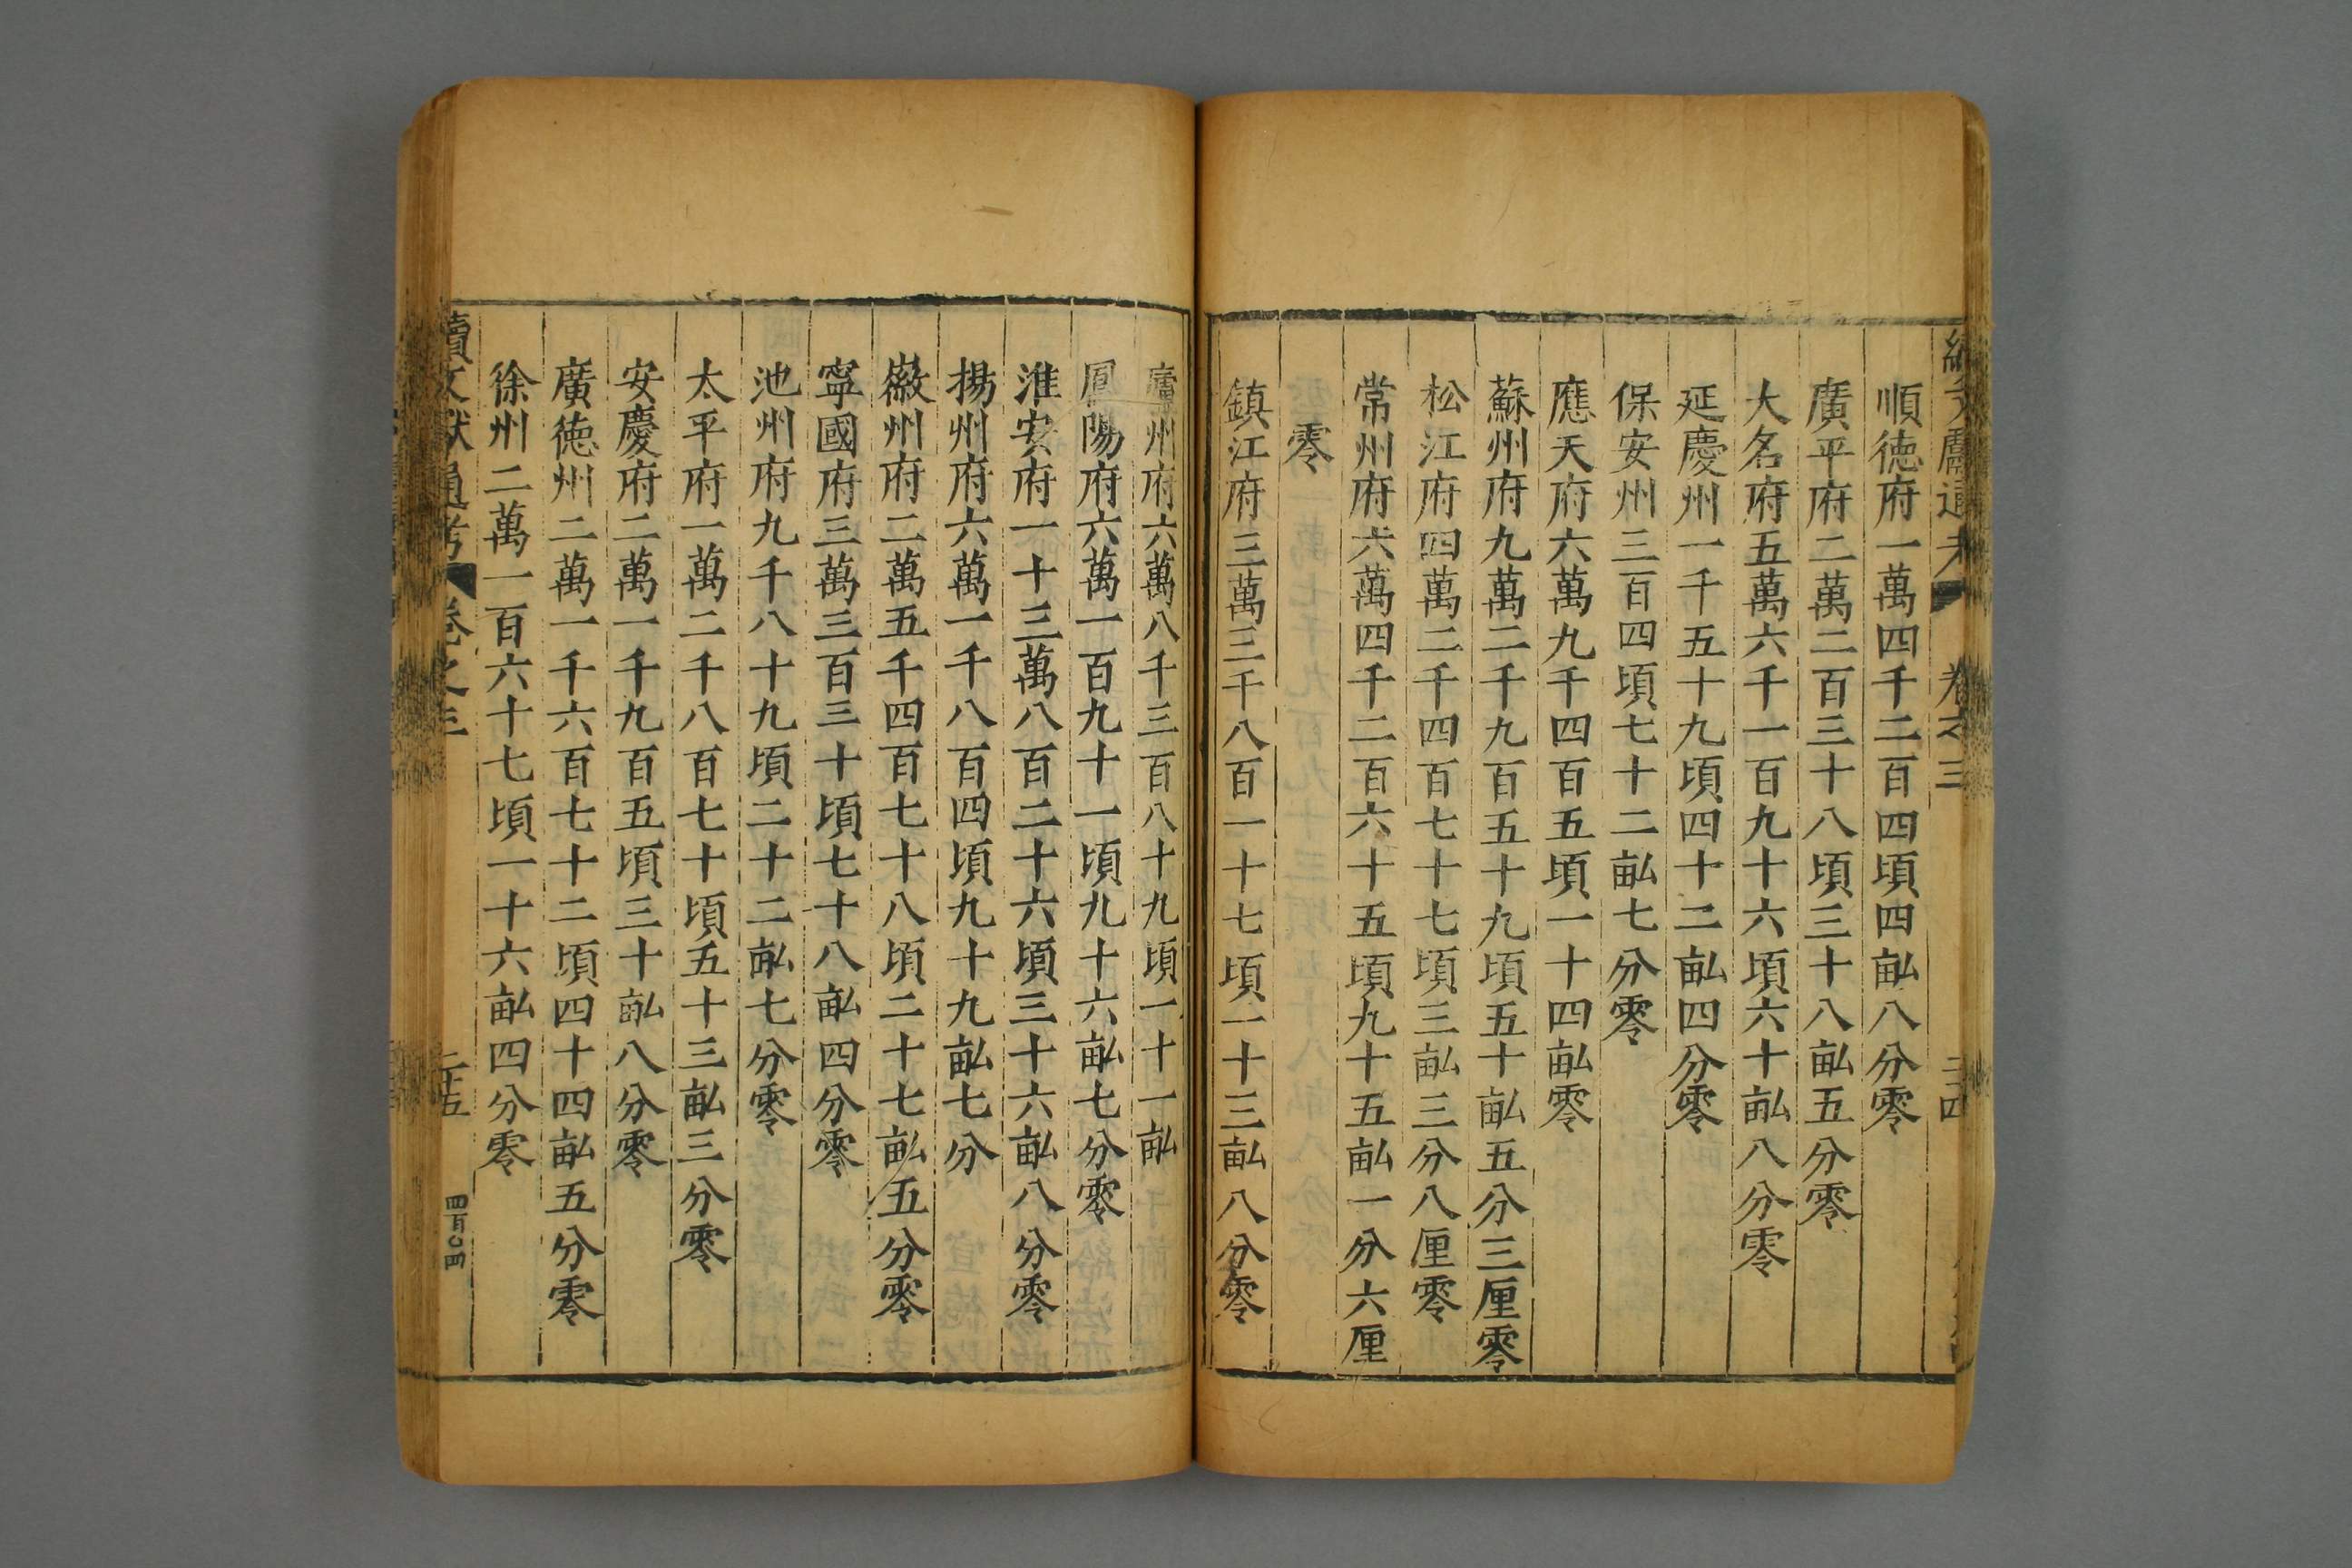 順徳府一萬四千二百四頃四畆八分零
廣平府二萬二百三十八頃三十八畆五分零
大名府五萬六千一百九十六頃六十畆八分零
延慶州一千五十九頃四十二畆四分零
保安州三百四頃七十二畆七分零
應天府六萬九千四百五頃一十四畆零
蘇州府九萬二千九百五十九頃五十畆五分三厘零
松江府四萬二千四百七十七頃三畆三分八厘零
常州府六萬四千二百六十五頃九十五畆一分六厘
零
鎮江府三萬三千八百一十七頃二十三畆八分零
廬州府六萬八千三百八十九頃一十一畆
鳳陽府六萬一百九十一頃九十六畆七分零
淮安府一十三萬八百二十六頃三十六畆八分零
揚州府六萬一千八百四頃九十九畆七分
徽州府二萬五千四百七十八頃二十七畆五分零
寜國府三萬三百三十頃七十八畆四分零
池州府九千八十九頃二十二畆七分零
太平府一萬二千八百七十頃五十三畆三分零
安慶府二萬一千九百五頃三十畆八分零
廣徳州二萬一千六百七十二頃四十四畆五分零
徐州二萬一百六十七頃一十六畆四分零
續文獻通考 卷之三 二十五 四百〇四